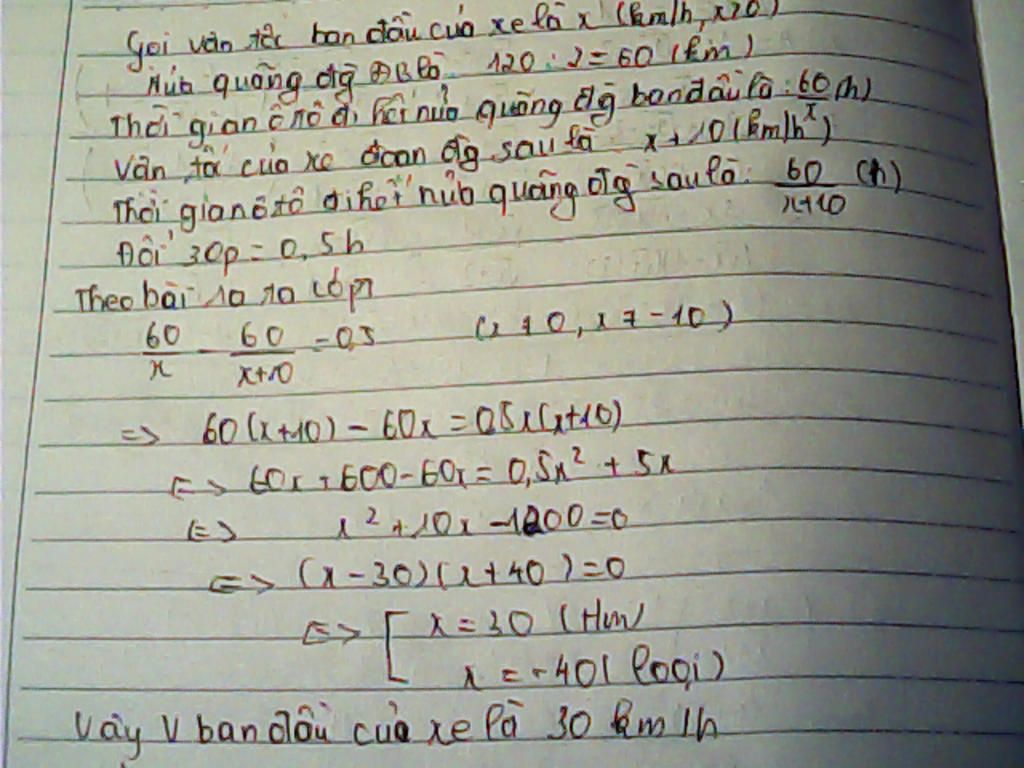 Gọi vân tốc ban đầu của xe là x (km/h, x>0)
Nửa quãng đg AB là 120 : 2 = 60 (km)
Thời gian ô tô đi hết nửa quãng đg ban đầu là : 60/x (h)
Vân tốc của xe đoạn đg sau là x + 10 (km/h)
Thời gian ô tô đi hết nửa quãng đg sau là: 60/(x+10) (h)
Đổi 30p = 0,5h
Theo bài ra ta có pt
60/x - 60/(x+10) = 0,5 (x ≠ 0, x ≠ -10)
=> 60(x+10) - 60x = 0,5x(x+10)
<=> 60x + 600 - 60x = 0,5x² + 5x
<=> x² + 10x - 1200 = 0
<=> (x - 30)(x + 40) = 0
<=> [ x = 30 (tm)
x = -40 (loại)
Vậy V ban đầu của xe là 30 km/h